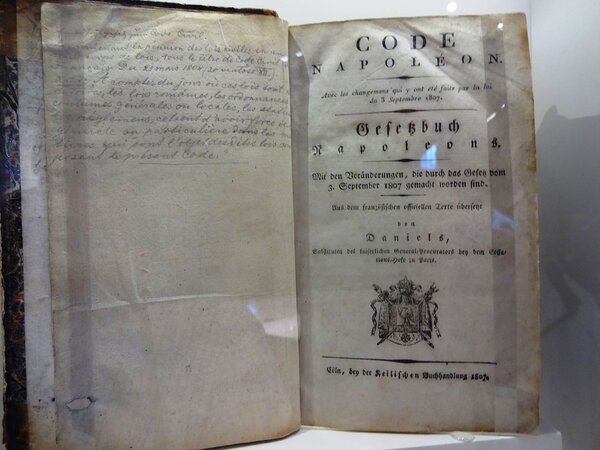 Code Civil.
la réunion des lois civiles en un
de lois, sous le titre de Code Civil
Du 21 mars 1804, 30 ventose XII.)
compter du jour où ces lois sont
les lois romaines, les ordonnances
coutumes générales ou locales, les statuts
règlemens, cessent d'avoir force de
générale ou particulière dans les
qui sont l'objet desdites lois com-
posant le présent Code."
CODE
NAPOLÉON.
Avec les changemens qui y ont été faits par la loi
du 3 Septembre 1807.
Gesetzbuch
Napoleons.
Mit den Veränderungen, die durch das Gesetz vom
3. September 1807 gemacht worden sind.
Aus dem französischen officiellen Texte übersetzt
von
Daniels,
Substituten des kaiserlichen General-Procurators bey dem Cassa-
tions-Hofe zu Paris.
Cöln, bey der Keilischen Buchhandlung 1807.